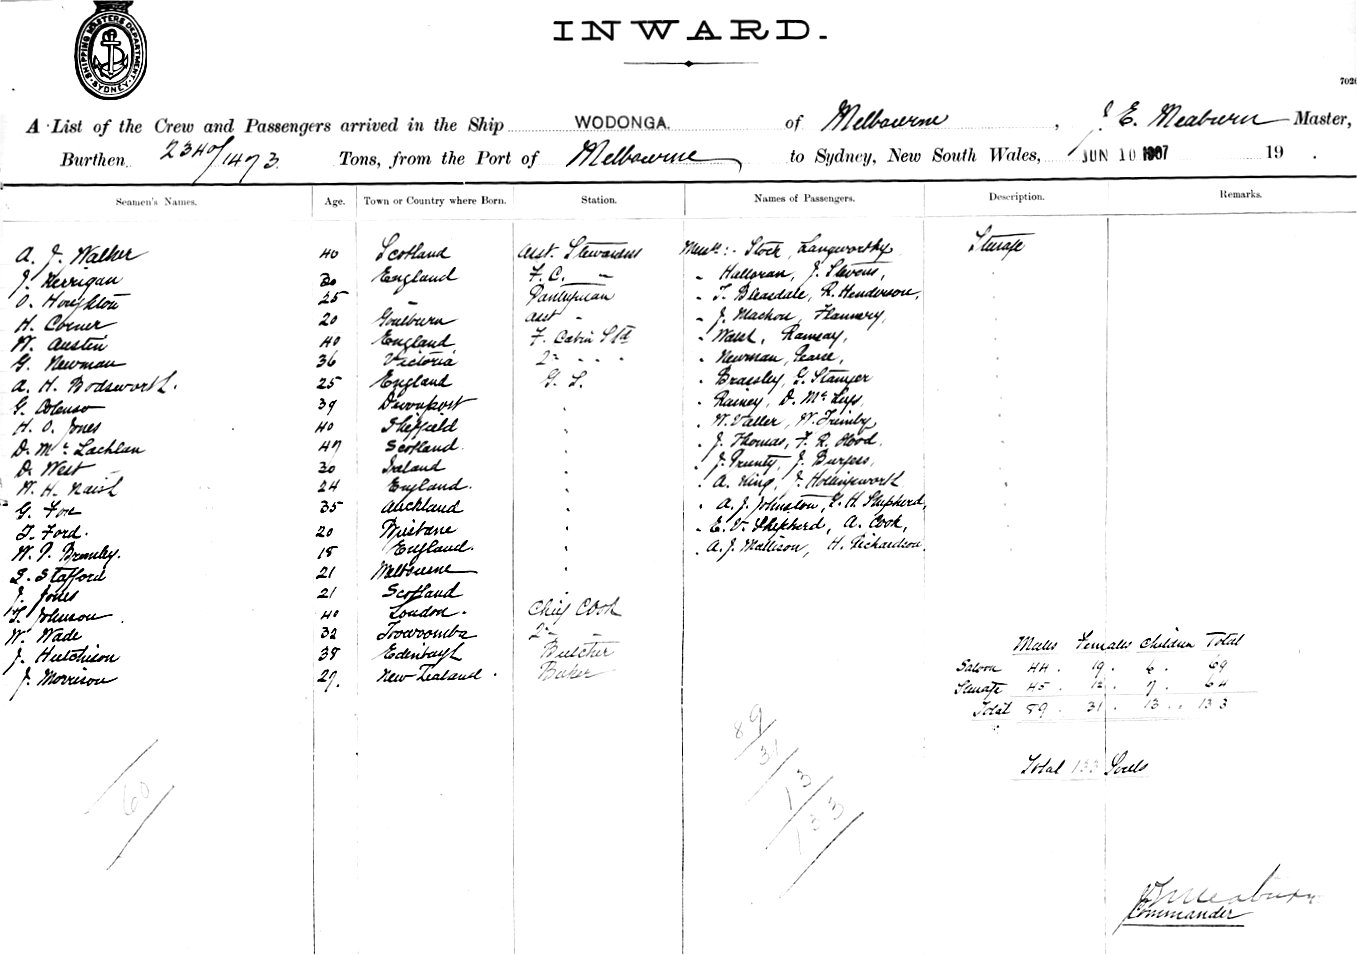 SHIPPING MASTERS DEPARTMENT. SYDNEY
INWARD.
7026
A List of the Crew and Passengers arrived in the Ship WODONGA. of Melbourne, J. E. Meaburn Master,
Burthen 2340/1473 Tons, from the Port of Melbourne to Sydney, New South Wales, JUN 10 1907 19 .
Seamen's Names. Age. Town or Country where Born. Station. Names of Passengers. Description. Remarks.
A. J. Walker 40 Scotland Asst. Stewardess Messrs:- Stock, Langworthy Steerage
J. Kerrigan 30 England F. C. " " Halloran, J. Stevens,
O. Houghton 25 " Pantryman " T. Bleasdale, R. Henderson,
H. Corner 20 Goulburn Asst " " J. Mackon, Flannery,
W. Austin 40 England F. Cabin Std " Walsh, Ramsay,
G. Newman 36 Victoria 2" " " " " Newman, Pearse,
A. H. Bodsworth. 25 England G. S. " Brassley, G. Stamper
G. Colenso 39 Devonport " " Rainey, D. McLeys
H. O. Jones 40 Sheffield " " W. Valler, W. Trimby
D. McLachlan 47 Scotland " " J. Thomas, F. R. Hood.
D. West 30 Ireland " " J. Prunty, J. Burgess,
W. H. Naish 24 England. " " A. King, J. Hollingsworth
G. Fox 35 Auckland " " A. J. Johnston, G. H. Shepherd,
T. Ford. 20 Brisbane " " E. V. Shepherd, A. Cook,
W. P. Bromley. 18 England. " " A. J. Mallison, H. Richardson.
S. Stafford 21 Melbourne "
J. Jones 21 Scotland "
T. Johnson 40 London. Chief Cook
W. Wade 32 Toowoomba 2" "
J. Hutchison 38 Edinburgh Butcher
J. Morrison 27. New Zealand. Baker
Males Females Children Total
Saloon 44. 19. 6. 69
Steerage 45. 12. 7. 64
Total 89. 31. 13. 133
Total 133 Souls
60
89
31
13
133
J E Meaburn
Commander